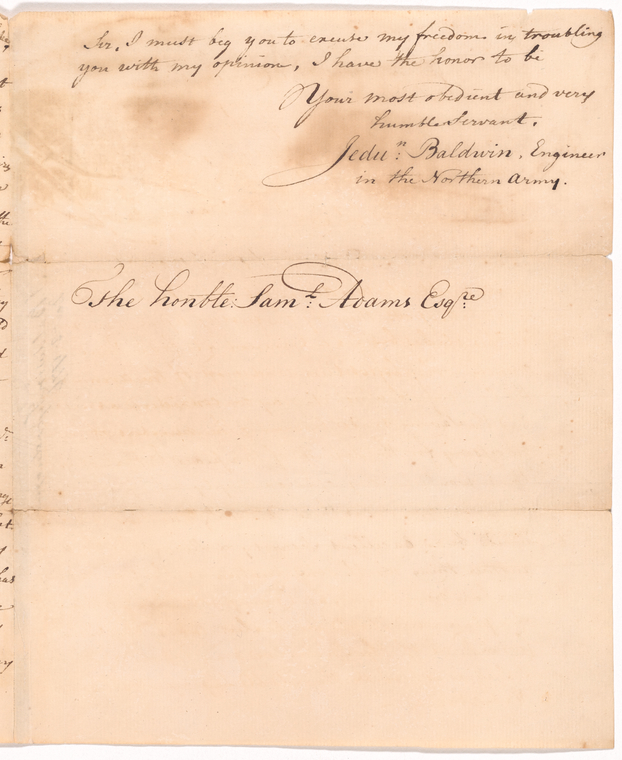 Sir, I must beg you to excuse my freedom in troubling
you with my opinion, I have the honor to be
Your most obedient and very
humble Servant.
Jedu.n Baldwin, Engineer
in the Northern Army.
The honble: Sam.l Adams Esq.re